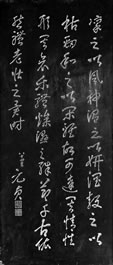 凜之以風神溫之以妍潤鼓之以
枯勁和之以閑雅故可達其情性
形其哀樂驗燥濕之殊節千古依
然體老壯之異時